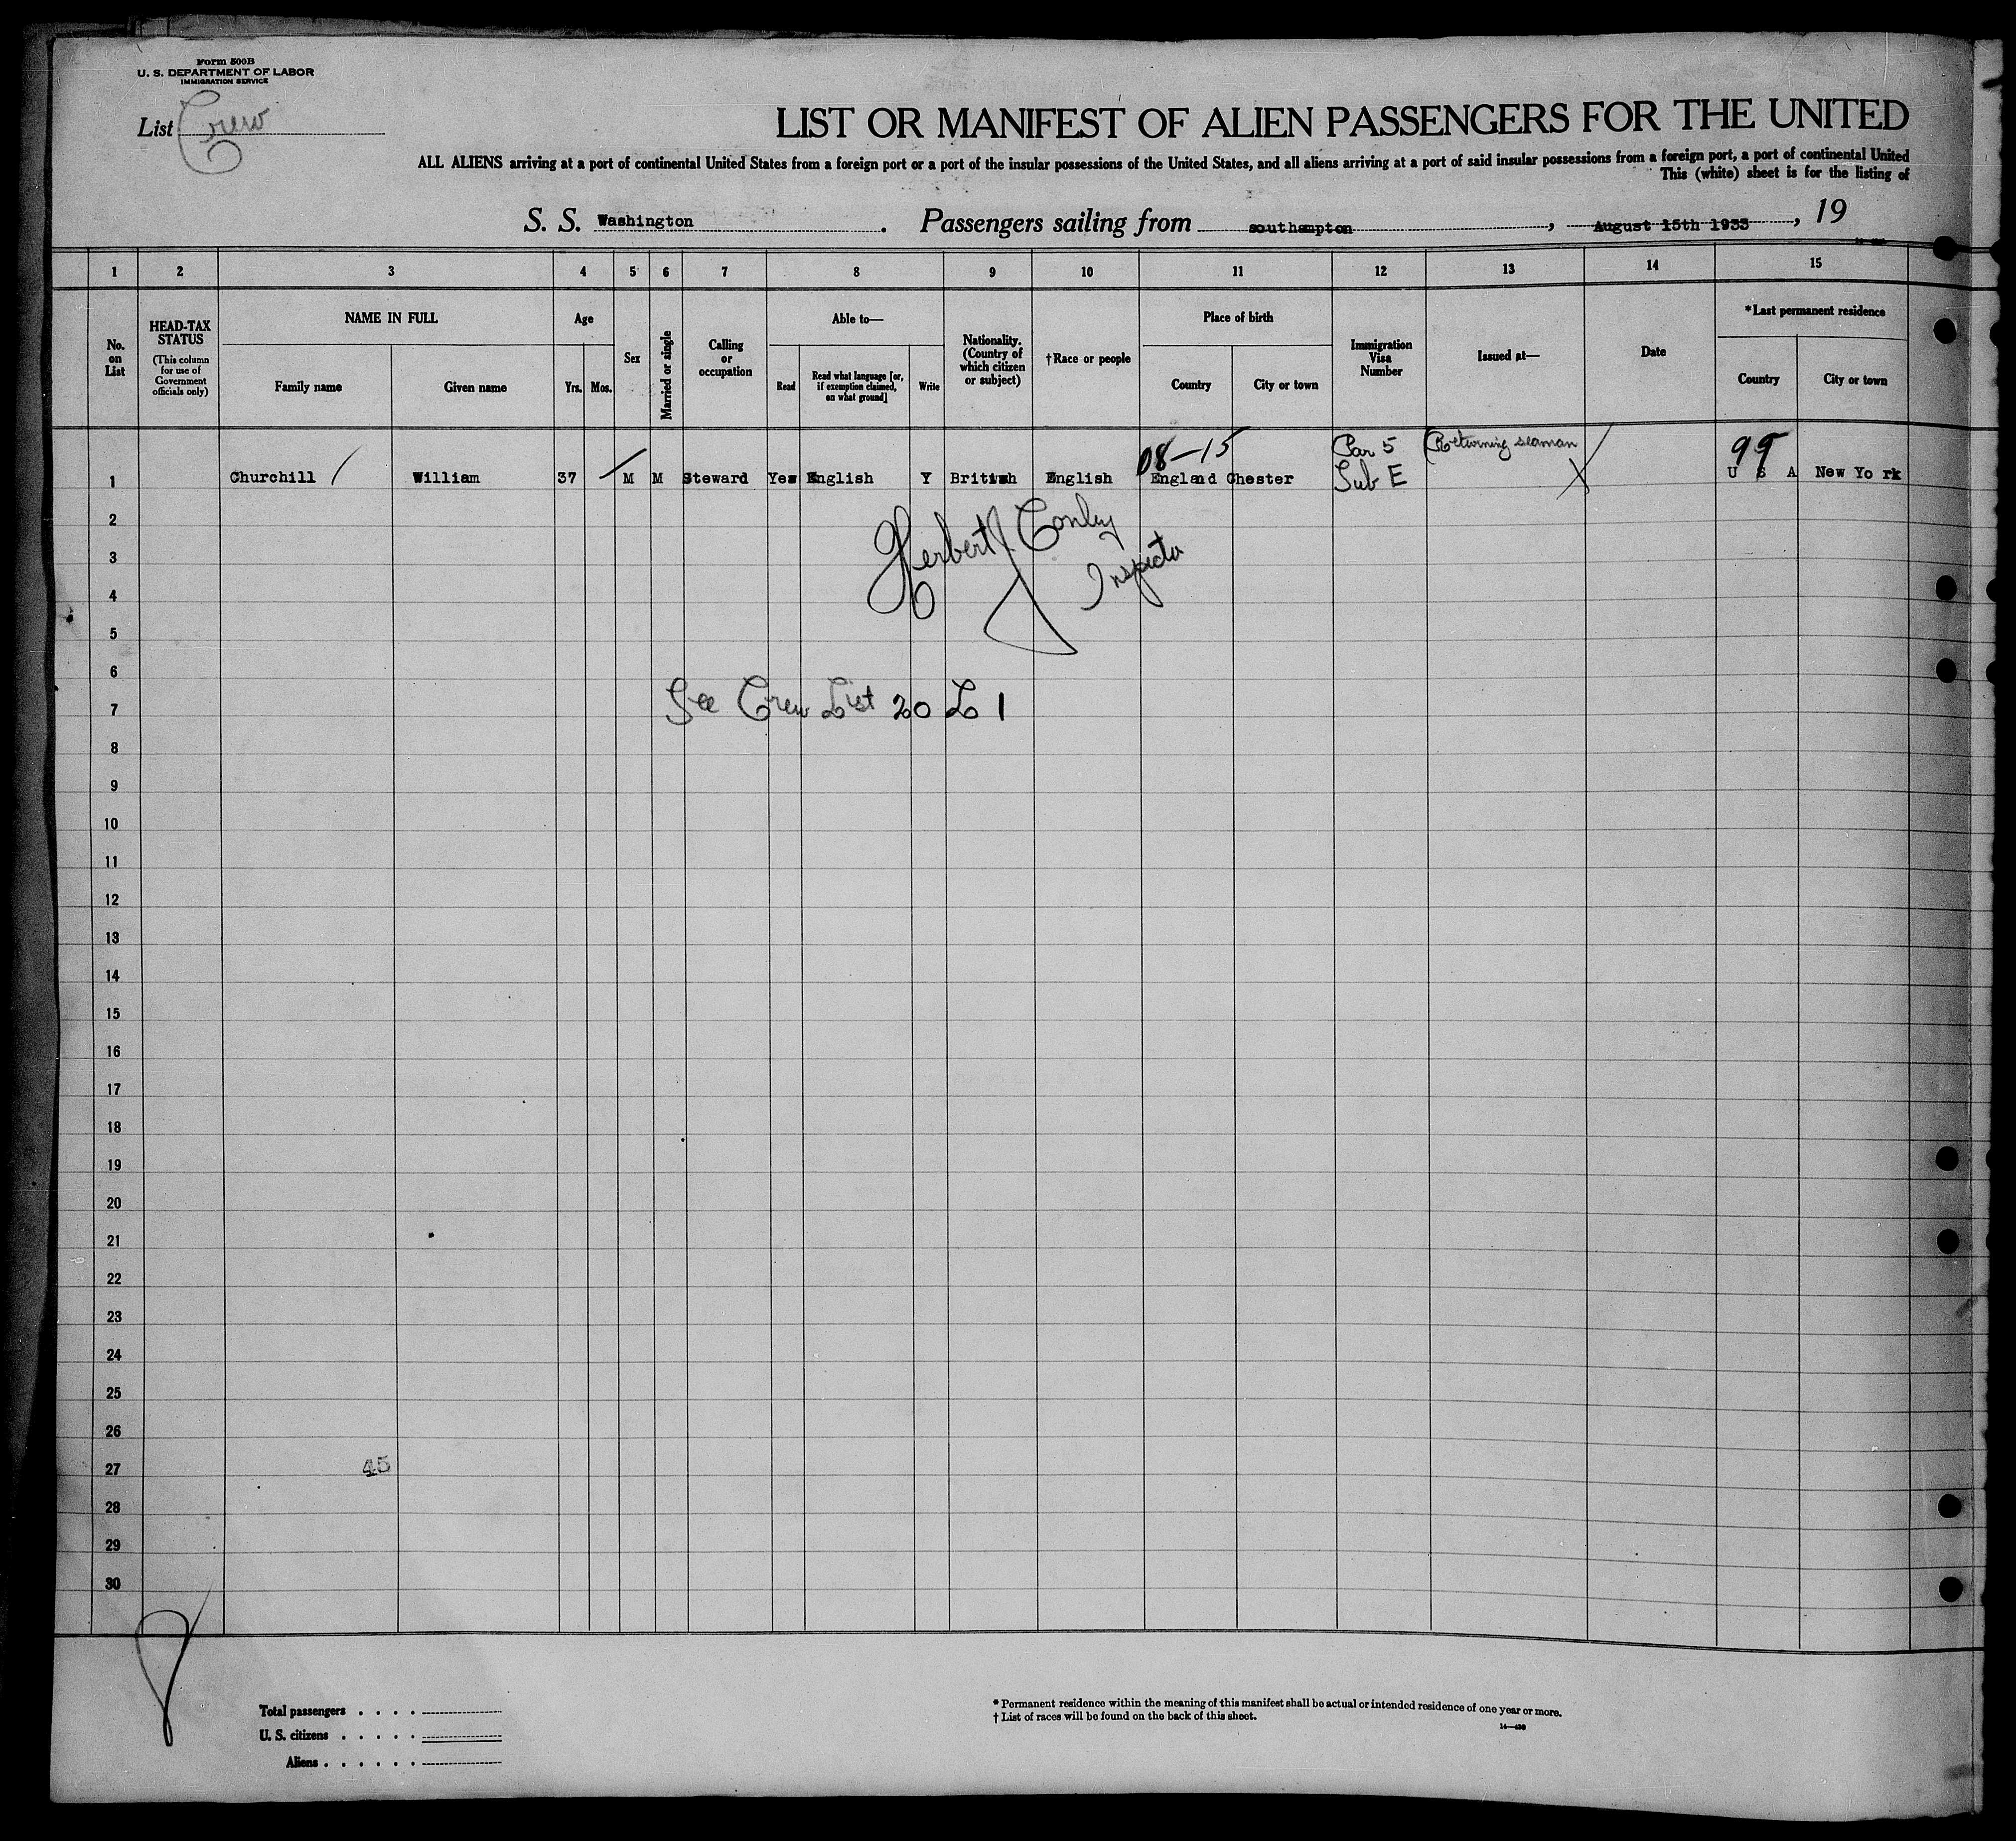 Form 500B
U. S. DEPARTMENT OF LABOR
IMMIGRATION SERVICE
List Crew
LIST OR MANIFEST OF ALIEN PASSENGERS FOR THE UNITED
ALL ALIENS arriving at a port of continental United States from a foreign port or a port of the insular possessions of the United States, and all aliens arriving at a port of said insular possessions from a foreign port, a port of continental United
This (white) sheet is for the listing of
S. S. Washington . Passengers sailing from southampton , August 15th 1933 , 19
1 2 3 4 5 6 7 8 9 10 11 12 13 14 15
No. on List
HEAD-TAX STATUS
(This column for use of Government officials only)
NAME IN FULL
Family name
Given name
Age
Yrs. Mos.
Sex
Married or single
Calling or occupation
Able to—
Read
Read what language [or, if exemption claimed, on what ground]
Write
Nationality. (Country of which citizen or subject)
†Race or people
Place of birth
Country
City or town
Immigration Visa Number
Issued at—
Date
*Last permanent residence
Country
City or town
08-15 Par 5 (Returning seaman 99
1 Churchill William 37 M M Steward Yes English Y British English England Chester Sub E U S A New Yo rk
2
Herbert J Conley
3
Inspector
4
5
6
7 See Crew List 20 L 1
8
9
10
11
12
13
14
15
16
17
18
19
20
21
22
23
24
25
26
27 45
28
29
30
Total passengers . . . .
U. S. citizens . . . . .
Aliens . . . . . .
* Permanent residence within the meaning of this manifest shall be actual or intended residence of one year or more.
† List of races will be found on the back of this sheet.